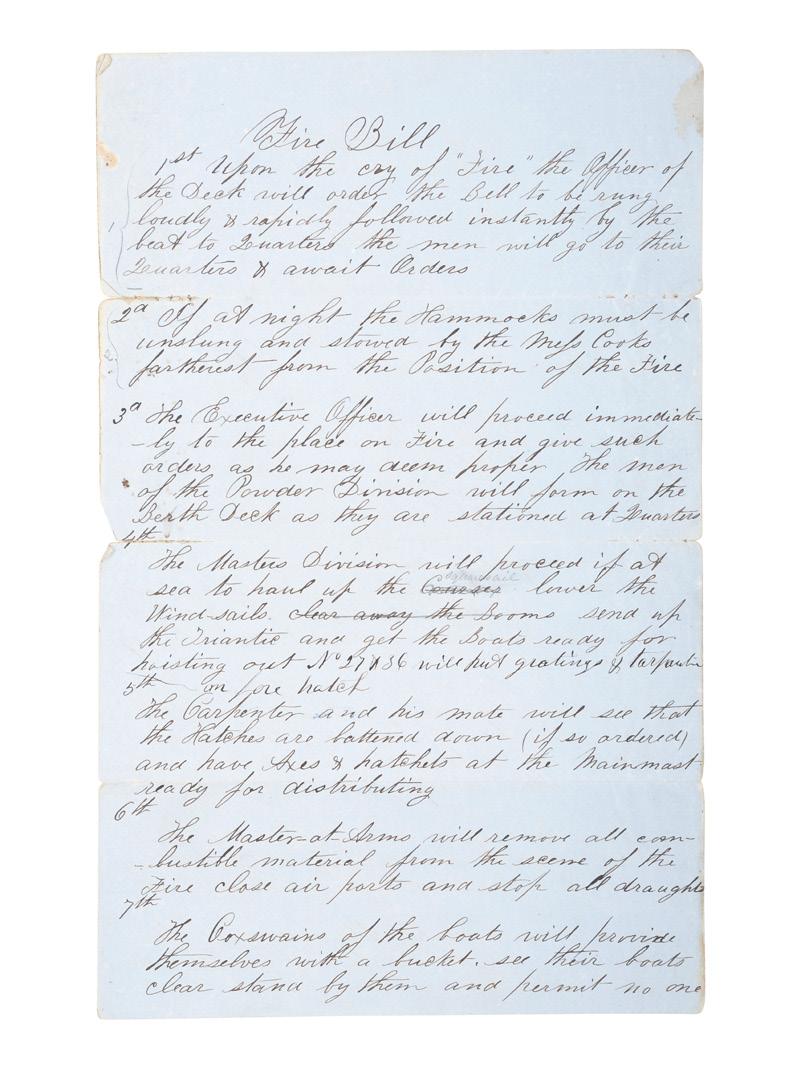 Fire Bill
1st Upon the cry of "Fire" the Officer of
the Deck will order the Bell to be rung
loudly & rapidly followed instantly by the
beat to Quarters the men will go to their
Quarters & await Orders
2d If at night the Hammocks must be
unslung and stowed by the Mess Cooks
fartherest from the Position of the Fire
3d The Executive Officer will proceed immediate-
-ly to the place on Fire and give such
orders as he may deem proper, The men
of the Powder Division will form on the
Berth Deck as they are stationed at Quarters
4th
The Masters Division will proceed if at
squaresail
sea to haul up the Courses lower the
Wind-sails. clear away the Booms send up
the Triantic and get the Boats ready for
hoisting out No 27 & 36 will put gratings & tarpaulin
5th on fore hatch
The Carpenter and his mate will see that
the Hatches are battened down (if so ordered)
and have Axes & hatchets at the Mainmast
ready for distributing
6th
The Master-at-Arms will remove all com-
-bustible material from the scene of the
Fire close air ports and stop all draughts
7th
The Coxswains of the boats will provide
themselves with a bucket. see their boats
clear stand by them and permit no one